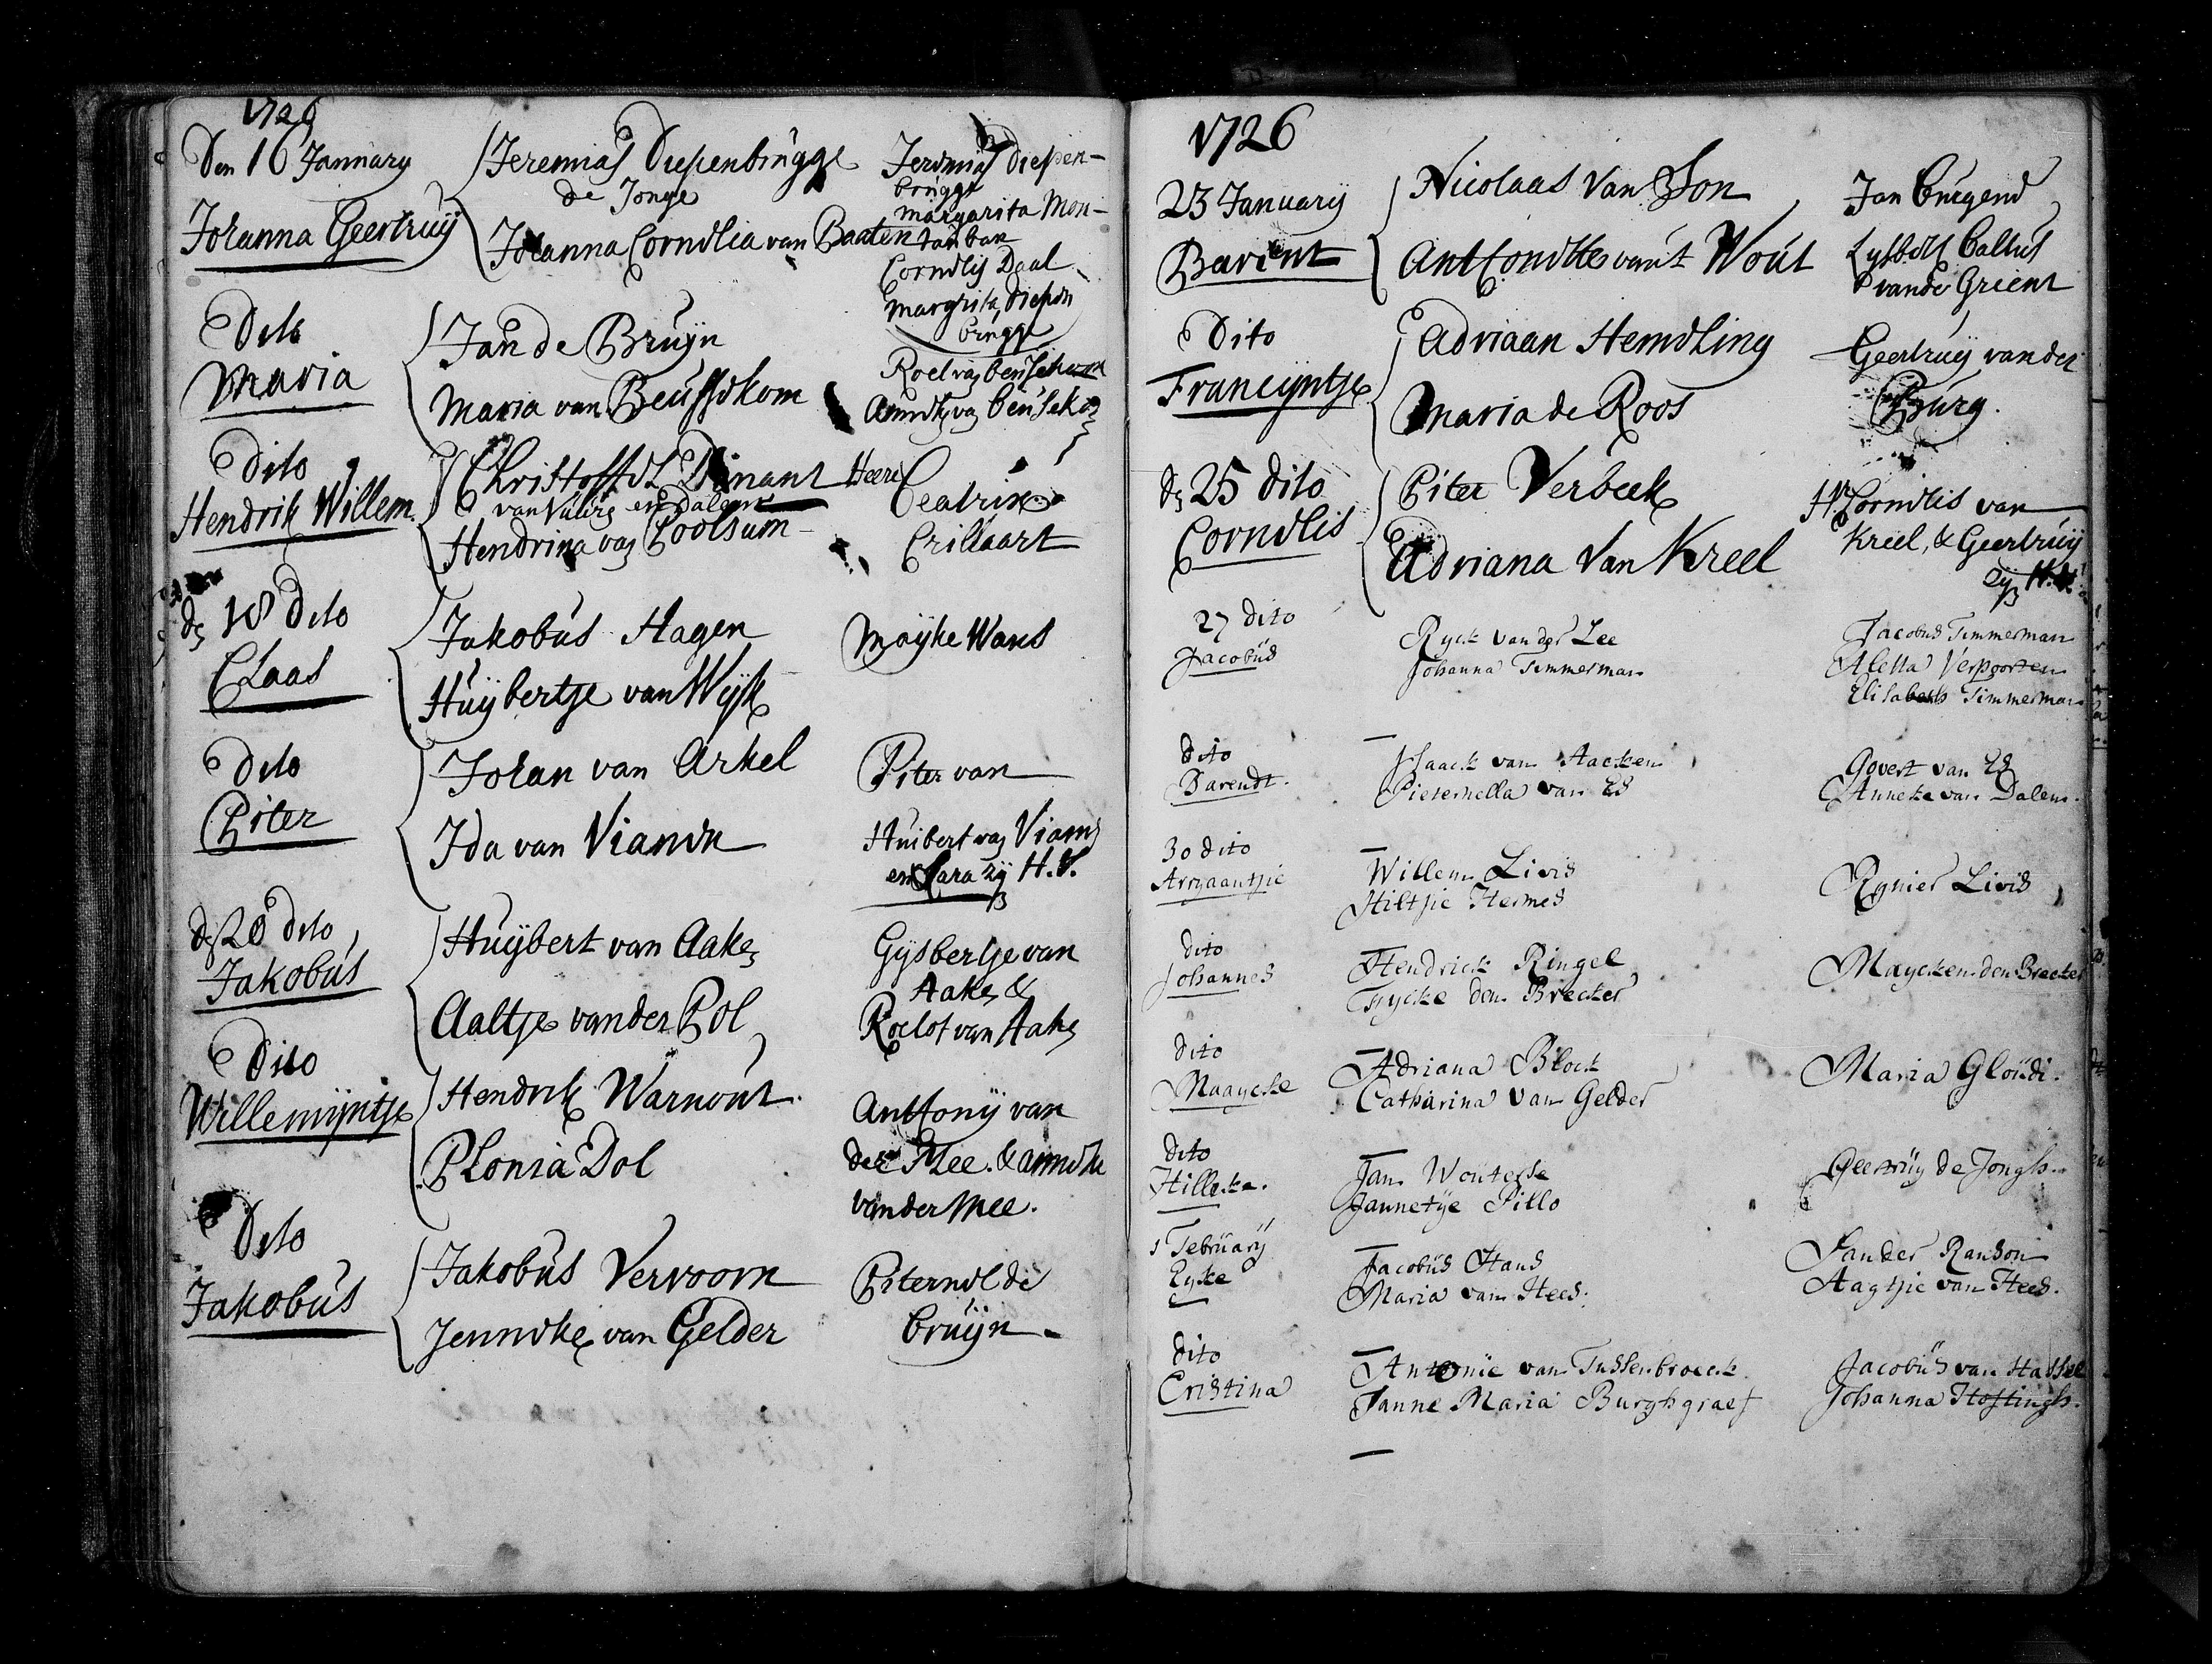 1726
Den 16 January
Johanna Geertruij
Jeremias Diepenbrugge
de Jonge
Johanna Cornelia van Baaten
Jeremias Diepen-
brugge
margarita Mon-
tauban
Cornelis Daal
margrita diepen
brugge
Dito
Maria
Jan de Bruijn
Maria van Beussekom
Roel van Beusekom
Dito
Hendrik Willem
Christoffel Dinant Heere
van Vuling en Dalem
Hendrina van Coolsum
Beatrix
Crillaart
18 Dito
Claas
Jakobus Hagen
Huijbertje van Wijk
Maijke Wans
Dito
Piter
Johan van Arkel
Ida van Vianen
Piter van
Huibert van Vianen
en Clara zij H.V.
20 dito
Jakobus
Huijbert van Aaken
Aaltje vander Pol
Gijsbertje van
Aaken &
Roelof van Aaken
Dito
Willemijntje
Hendrik Warnout
Plonia Dol
Anthonij van
der Mee. & anneke
vander Mee.
Dito
Jakobus
Jakobus Vervoorn
Jenneke van Gelder
Piternel de
bruijn
1726
23 January
Barent
Nicolaas Van Son
Anthonette van't Wout
Jan
Lijsbett
vande Grient
Dito
Francijntje
Adriaan Hemeling
Maria de Roos
Geertruij vander
Burg.
25 dito
Cornelis
Piter Verbeek
Adriana Van Kreel
Hr Cornelis van
Kreel, & Geertruij
27 dito
Jacobus
Ryck van der Lee
Johanna Timmerman
Jacobus Timmerman
Aletta Verpoorten
Elisabeth Timmerman
dito
Barendt.
Isaack van Aacken
Pieternella van Es
Govert van Es
Anneke van Dalem.
30 dito
Arryaantjie
Willem Livis
Hiltjie Hermes
Rynier Livis
dito
Johannes
Hendrick Ringel
Tyjcke den Brecker
Maycken den Brecker
dito
Maaycke
Adriana Block
Catharina van Gelder
Maria Gloudi.
dito
Hilleke.
Jan Wouterse
Jannetje Pillo
Geertruy de Jongh.
1 February
Eyke
Jacobus Hans
Maria van Hees.
Sander Ranson
Aagtjie van Hees.
dito
Cristina
Antonie van Tussenbroeck
Janne Maria Burghgraef
Jacobus van Hassel
Johanna Hoftingh.